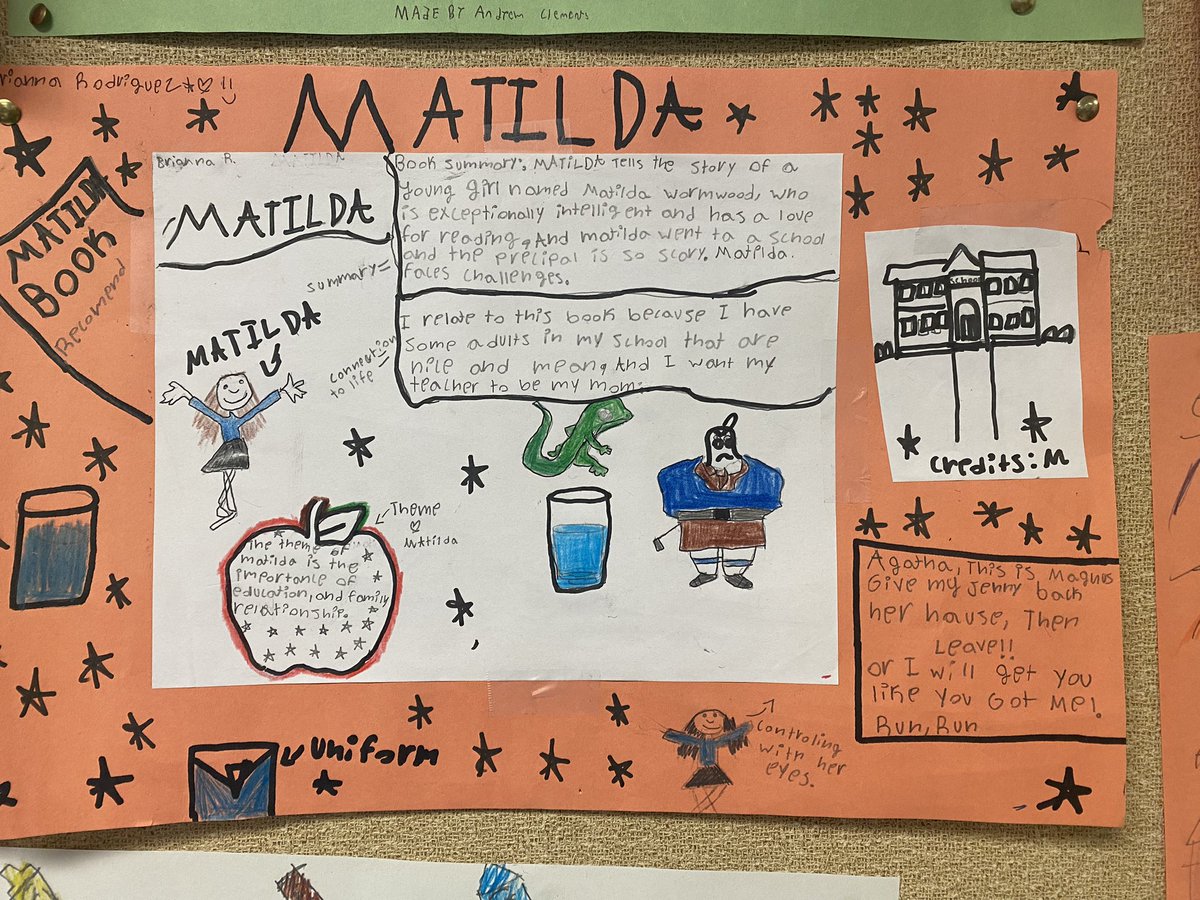 MADE BY Andrew Clements
rianna Rodriguez
MATILDA
MATILDA
BOOK
Recomend
Brianna R.
MATILDA
MATILDA
Book summary: MATILDA Tells the story of a
young girl named Matilda wormwood, who
is exceptionally intelligent and has a love
for reading. And matilda went to a school
and the precipal is so scary. Matilda.
Faces challenges.
summary=
I relate to this book because I have
some adults in my school that are
nice and mean. And I want my
teacher to be my mom.
connection
to life=
MATILDA
Theme
Matilda
The theme of
matilda is the
importance of
education, and family
relationship.
School
Credits: M
Agatha, This is Magnus
Give my Jenny back
her hause, Then
Leave!!
or I will get you
like you Got Me!
Run, Run
uniform
Controling
with her
eyes.